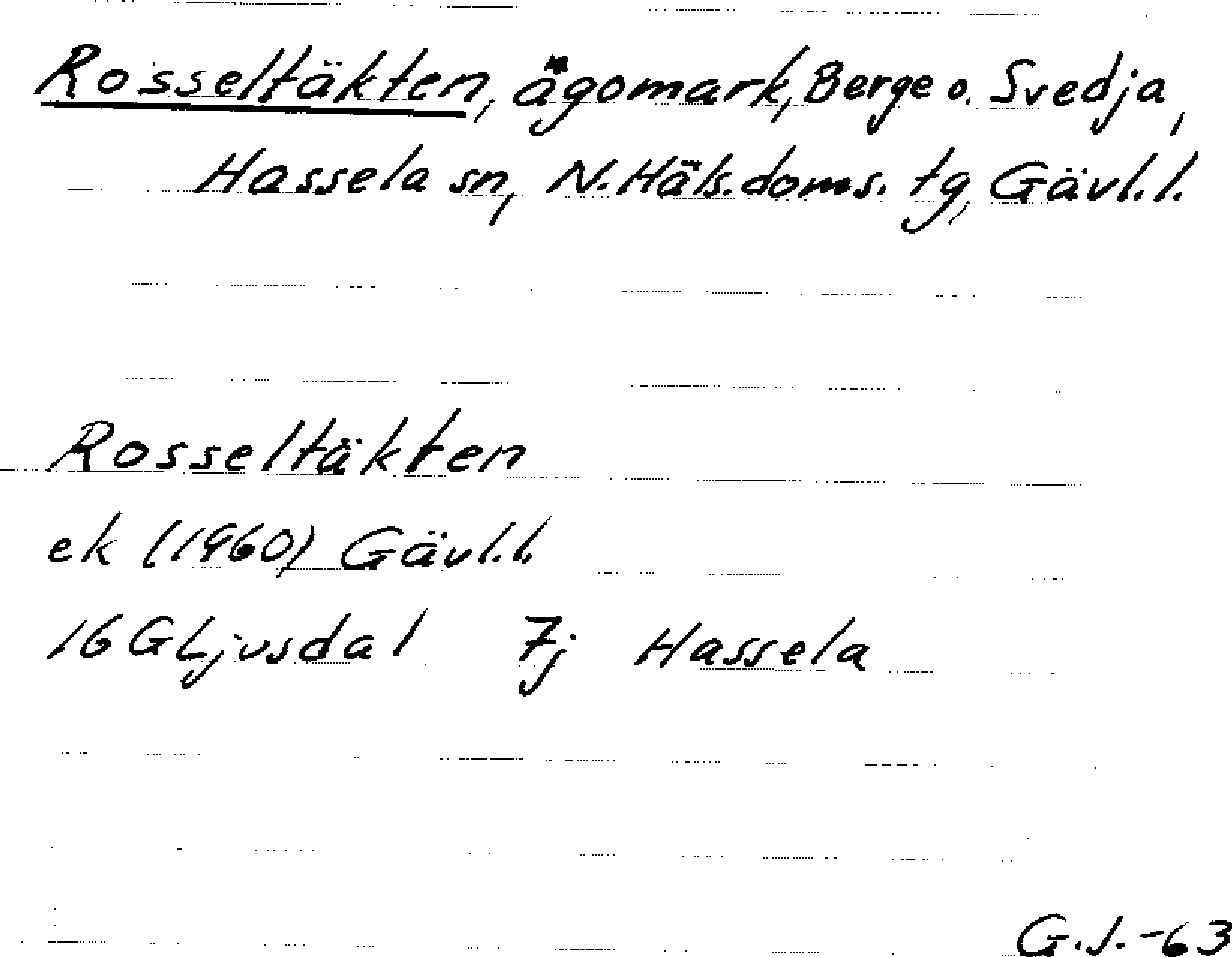 Rosseltäkten, ägomark, Berge o. Svedja,
Hassela sn, N. Häls. doms. tg, Gävl.l.
Rosseltäkten
ek (1960) Gävl.l.
16 G Ljusdal 7j Hassela
G.J.-63